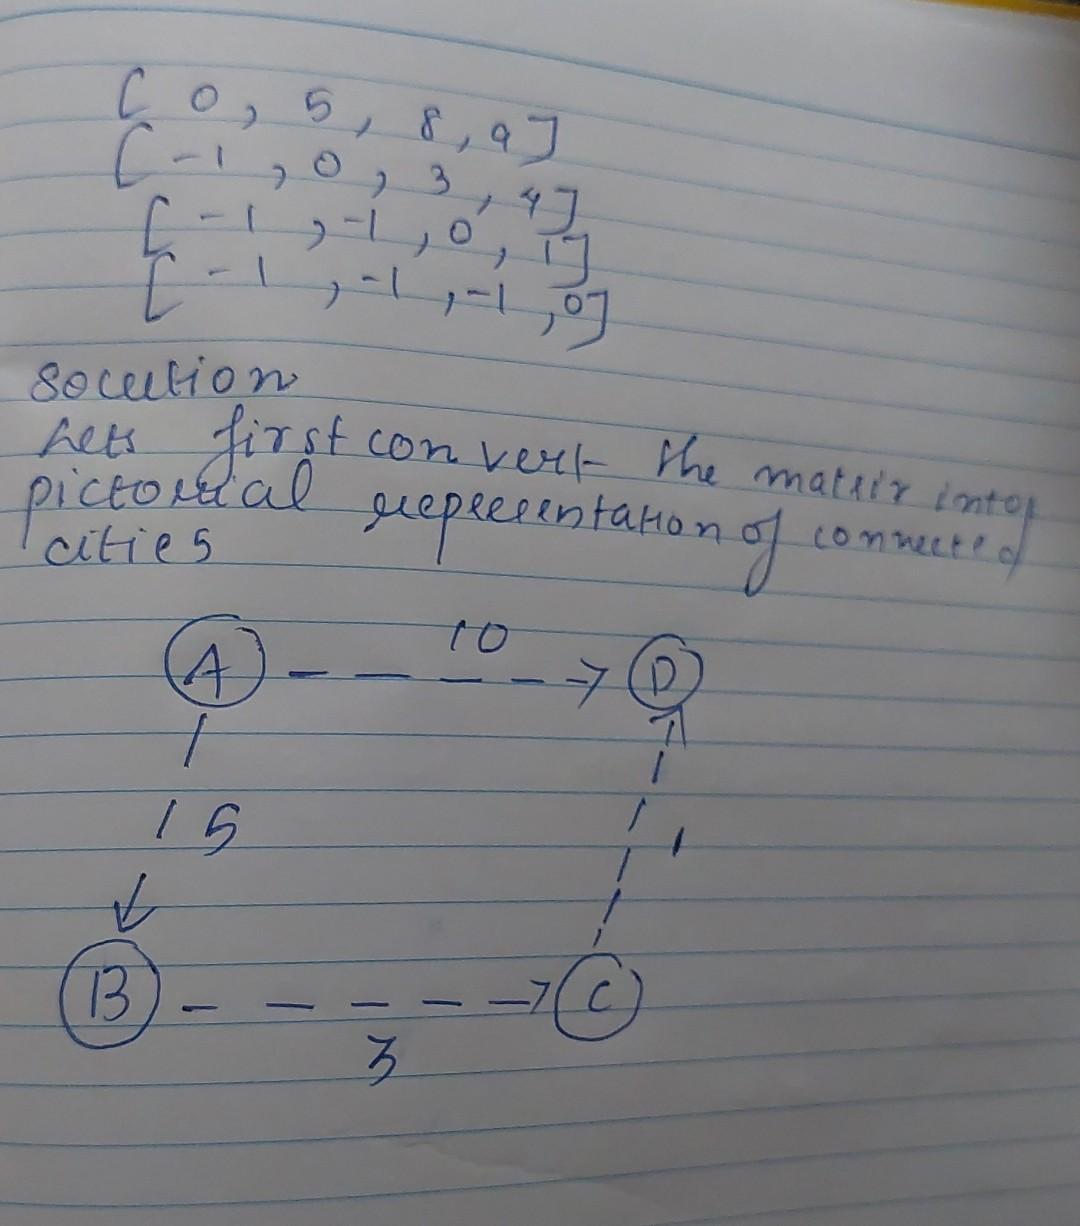 [ 0, 5, 8, 9]
[-1, 0, 3, 4]
[-1, -1, 0, 1]
[-1, -1, -1, 0]
solution
Lets first convert the matrix into
pictorial representation of connected
cities
A 10 D
5
1
B C
3